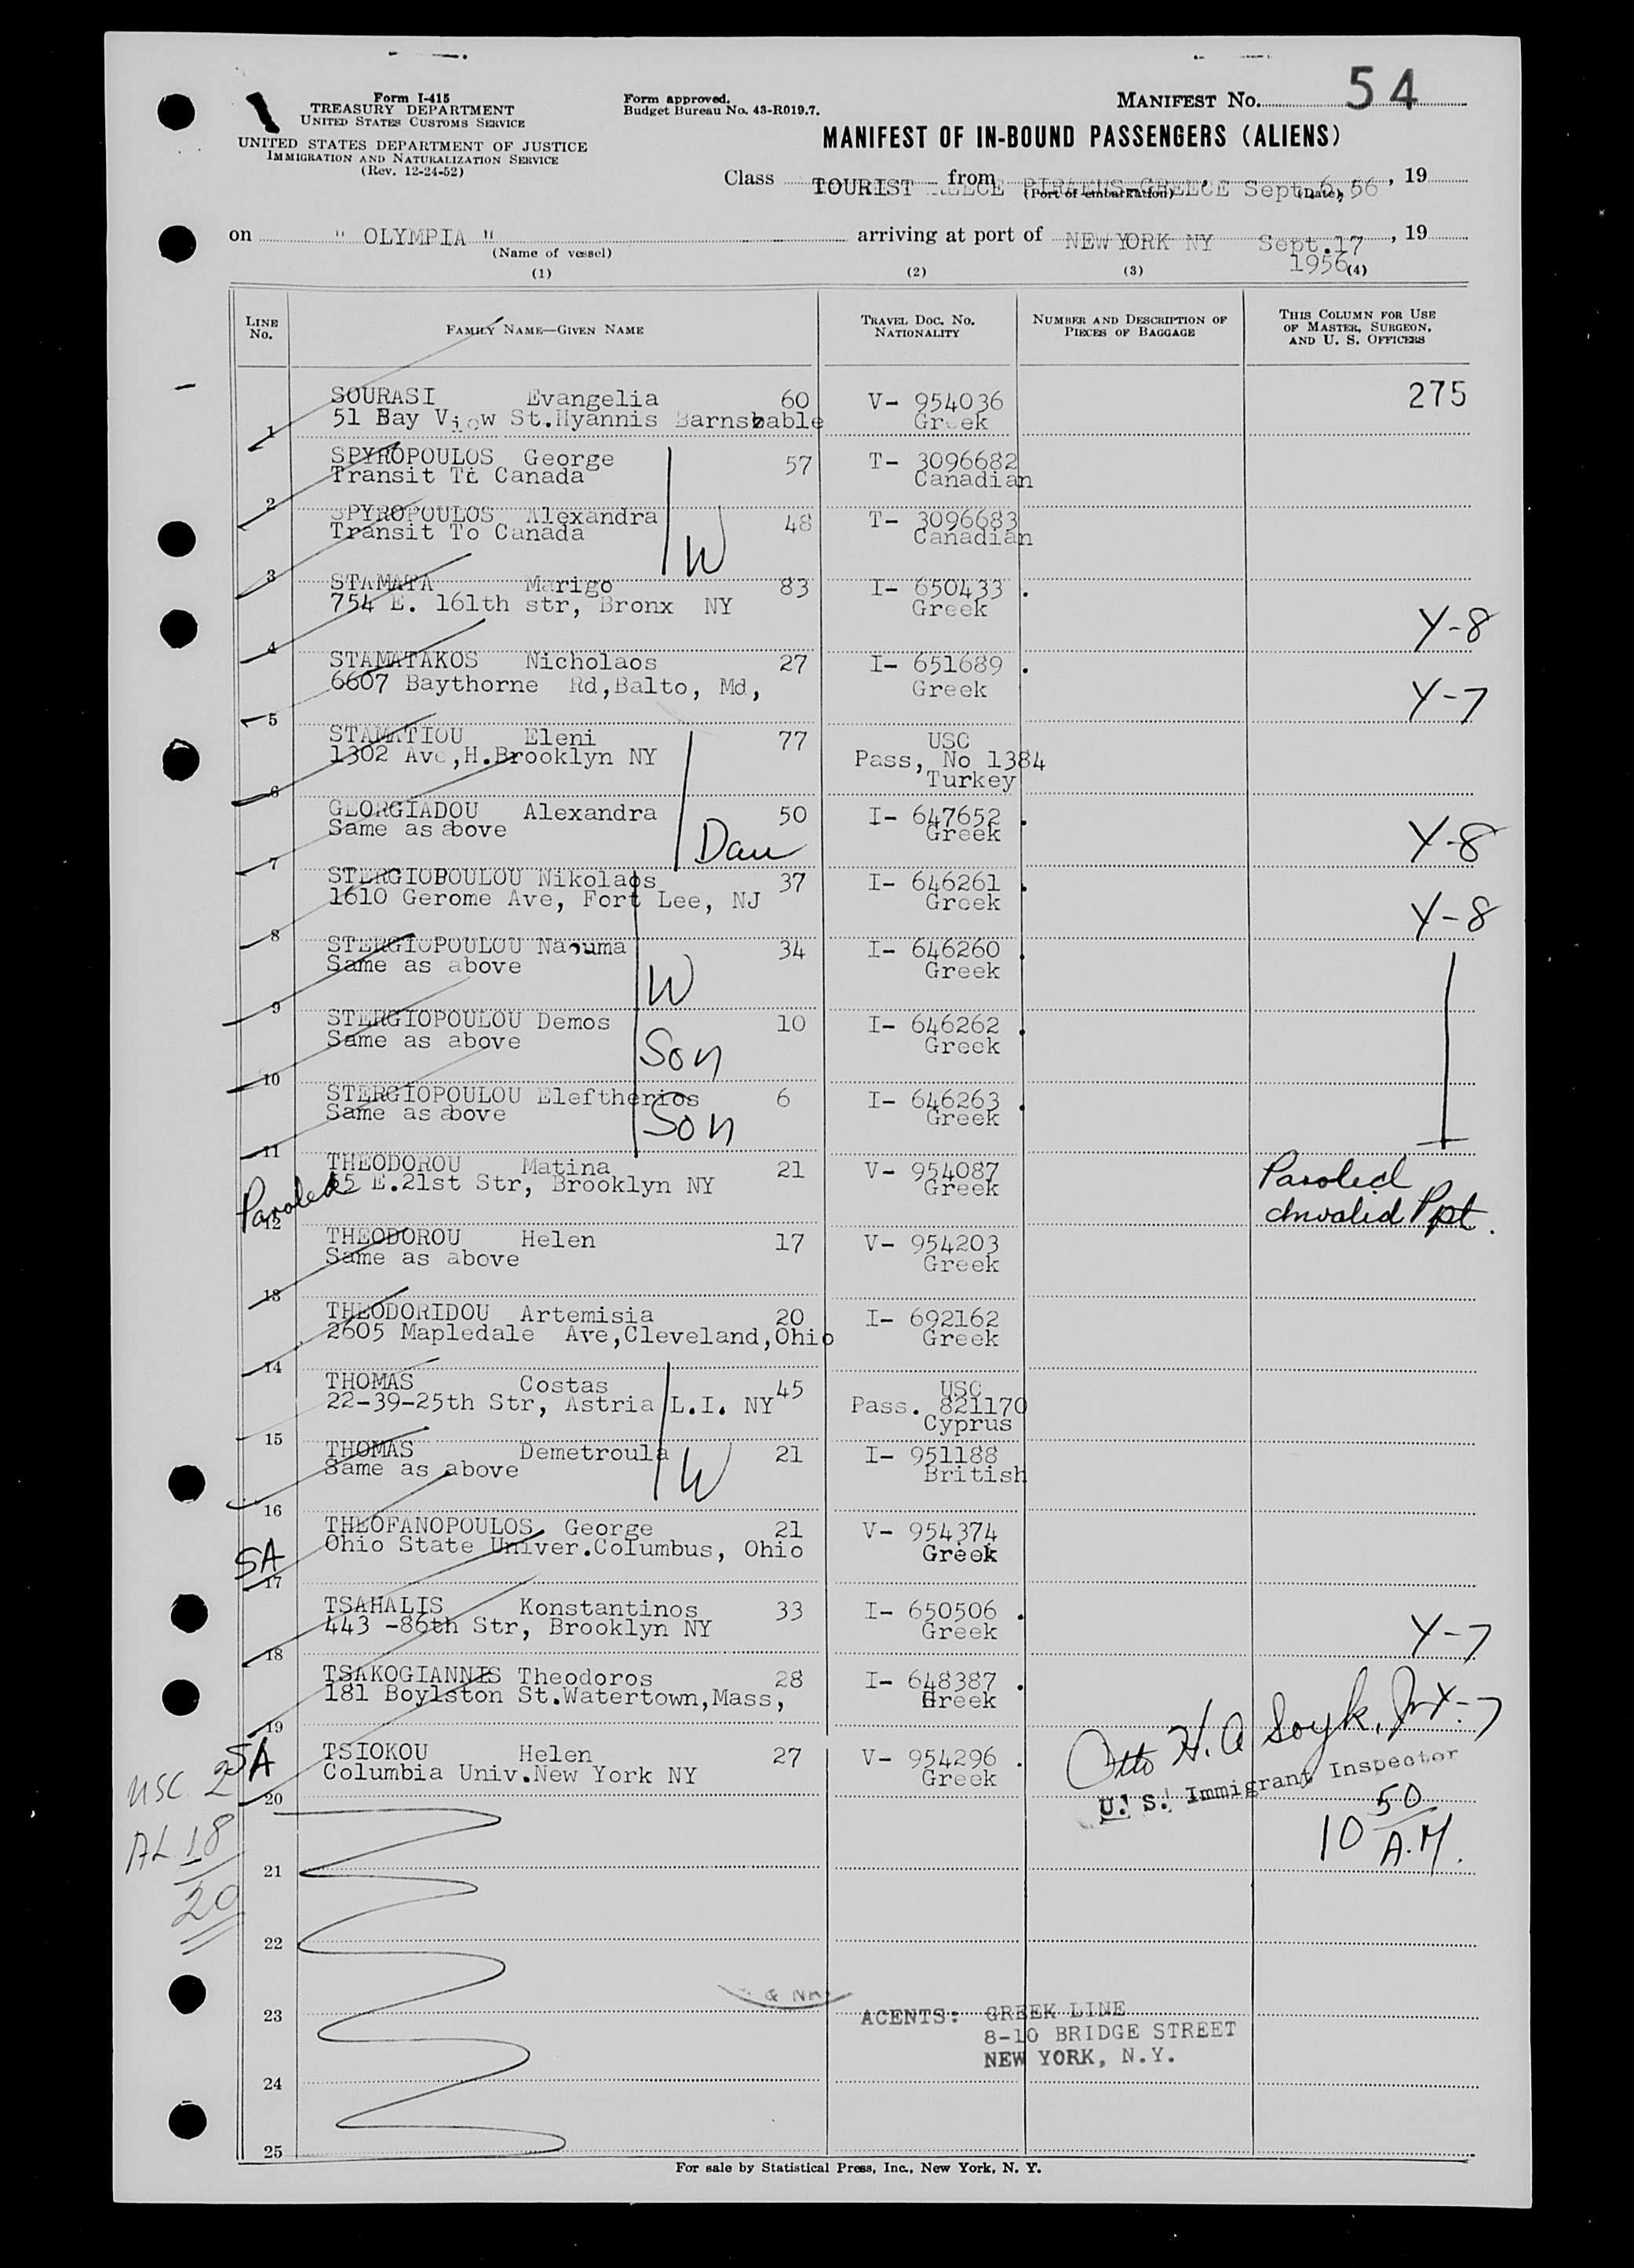 Form I-415
TREASURY DEPARTMENT
UNITED STATES CUSTOMS SERVICE
UNITED STATES DEPARTMENT OF JUSTICE
IMMIGRATION AND NATURALIZATION SERVICE
(Rev. 12-24-52)
Form approved.
Budget Bureau No. 43-R019.7.
MANIFEST No. 54
MANIFEST OF IN-BOUND PASSENGERS (ALIENS)
Class TOURIST from PIRAEUS-GREECE Sept. 6, 56, 19
(Port of embarkation) (Date)
on " OLYMPIA " arriving at port of NEW YORK NY Sept.17, 19
1956
(Name of vessel)
(1) (2) (3) (4)
LINE No. FAMILY NAME—GIVEN NAME TRAVEL DOC. NO. NATIONALITY NUMBER AND DESCRIPTION OF PIECES OF BAGGAGE THIS COLUMN FOR USE OF MASTER, SURGEON, AND U. S. OFFICERS
275
SOURASI Evangelia 60 V- 954036
1 51 Bay View St.Hyannis Barnstable Greek
SPYROPOULOS George 57 T- 3096682
2 Transit To Canada Canadian
SPYROPOULOS Alexandra 48 T- 3096683
3 Transit To Canada W Canadian
STAMATA Marigo 83 I- 650433 .
4 754 E. 161th str, Bronx NY Greek Y-8
STAMATAKOS Nicholaos 27 I- 651689 .
5 6607 Baythorne Rd,Balto, Md, Greek Y-7
STAMATIOU Eleni 77 USC
1302 Ave,H.Brooklyn NY Pass, No 1384
6 Turkey
GEORGIADOU Alexandra 50 I- 647652 .
7 Same as above Dau Greek Y-8
STERGIOPOULOU Nikolaos 37 I- 646261 .
8 1610 Gerome Ave, Fort Lee, NJ Greek Y-8
STERGIOPOULOU Naouma 34 I- 646260 .
9 Same as above W Greek
STERGIOPOULOU Demos 10 I- 646262 .
10 Same as above Son Greek
STERGIOPOULOU Eleftherios 6 I- 646263 .
11 Same as above Son Greek
THEODOROU Matina 21 V- 954087 Paroled
12 Paroled E.21st Str, Brooklyn NY Greek Invalid Ppt.
THEODOROU Helen 17 V- 954203
13 Same as above Greek
THEODORIDOU Artemisia 20 I- 692162
14 2605 Mapledale Ave,Cleveland,Ohio Greek
THOMAS Costas 45 USC
22-39-25th Str, Astria L.I. NY Pass. 821170
15 Cyprus
THOMAS Demetroula 21 I- 951188
16 Same as above W British
THEOFANOPOULOS George 21 V- 954374
SA 17 Ohio State Univer.Columbus, Ohio Greek
TSAHALIS Konstantinos 33 I- 650506 .
18 443 -86th Str, Brooklyn NY Greek Y-7
TSAKOGIANNIS Theodoros 28 I- 648387 .
19 181 Boylston St.Watertown,Mass, Greek Y-7
SA TSIOKOU Helen 27 V- 954296 .
20 Columbia Univ.New York NY Greek
Otto H. A Soyk, Jr
U. S. Immigrant Inspector
10 50 A.M.
USC 2
AL 18
20
21
22
23
24
25
AGENTS: GREEK LINE
8-10 BRIDGE STREET
NEW YORK, N.Y.
For sale by Statistical Press, Inc., New York, N. Y.